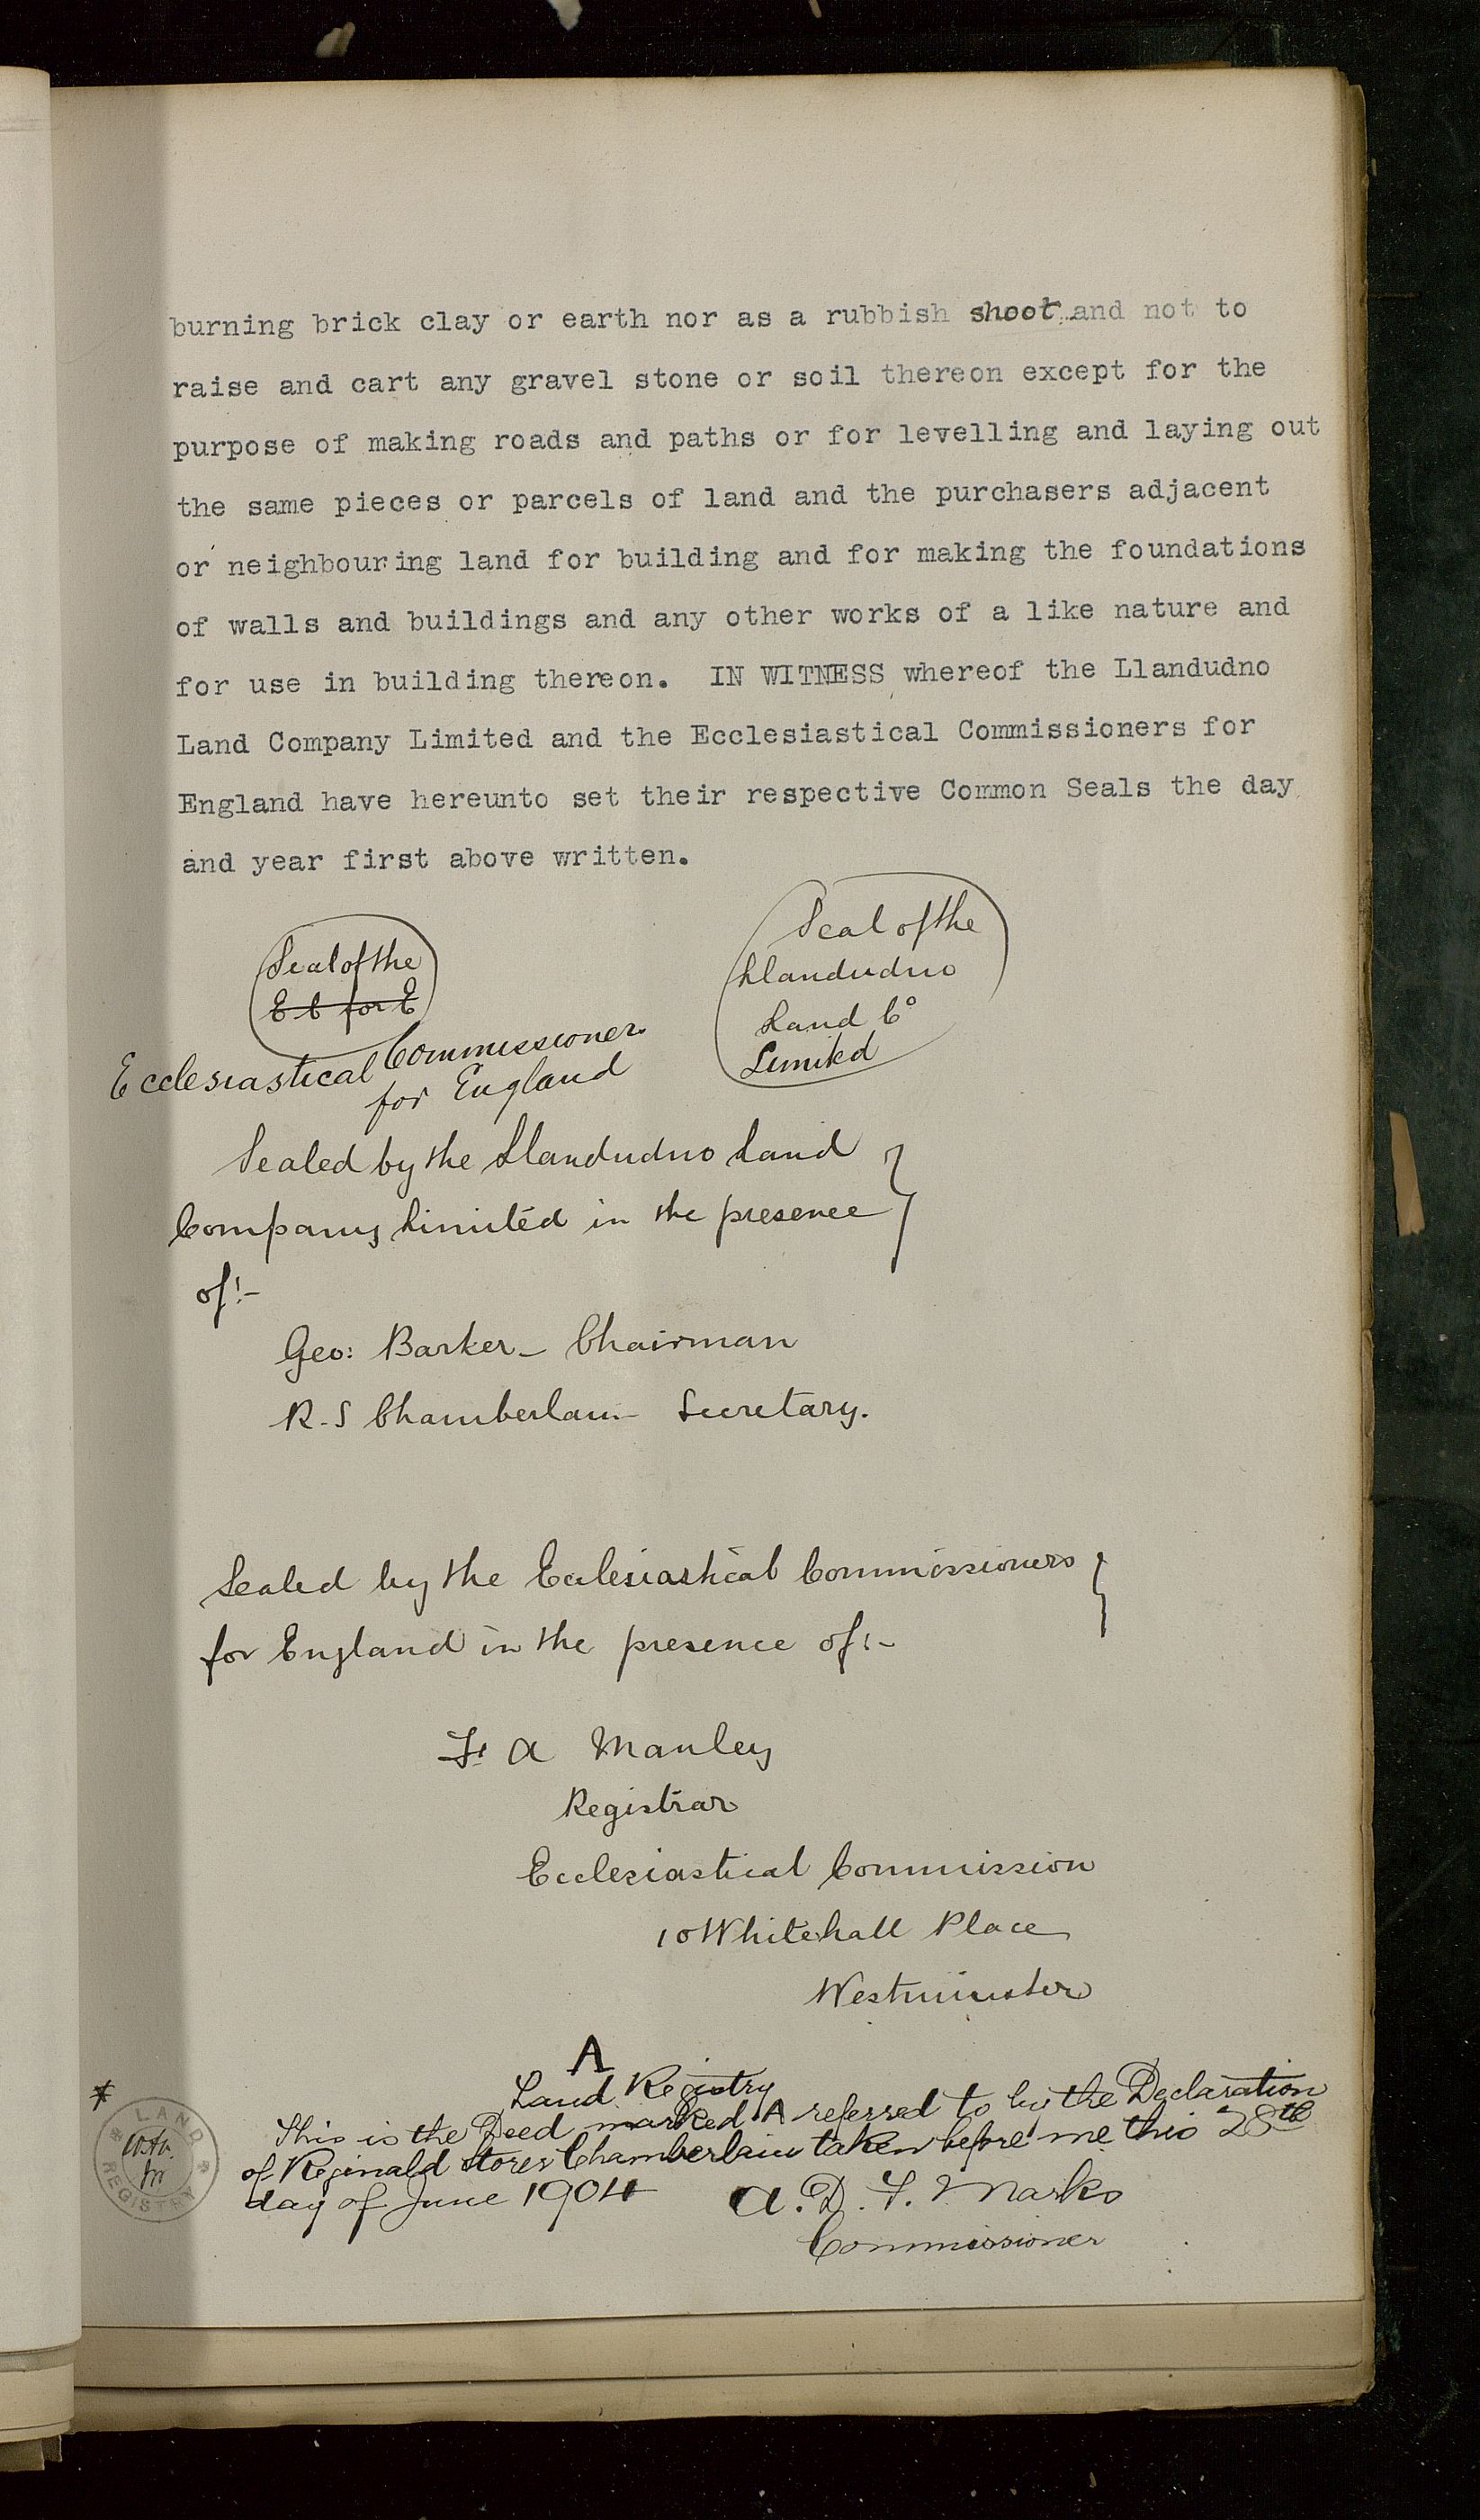 burning brick clay or earth nor as a rubbish shoot and not to
raise and cart any gravel stone or soil thereon except for the
purpose of making roads and paths or for levelling and laying out
the same pieces or parcels of land and the purchasers adjacent
or neighbouring land for building and for making the foundations
of walls and buildings and any other works of a like nature and
for use in building thereon. IN WITNESS whereof the Llandudno
Land Company Limited and the Ecclesiastical Commissioners for
England have hereunto set their respective Common Seals the day
and year first above written.
Seal of the
E C for E
Ecclesiastical Commissioners
for England
Seal of the
Llandudno
Land Co
Limited
Sealed by the Llandudno Land
Company Limited in the presence
of:-
Geo: Barker - Chairman
R. S Chamberlain - Secretary.
Sealed by the Ecclesiastical Commissioners
for England in the presence of:-
F. A Manley
Registrar
Ecclesiastical Commission
10 Whitehall Place
Westminster
A
Land Registry
This is the Deed marked A referred to by the Declaration
of Reginald Stores Chamberlain taken before me this 28th
day of June 1904
A. D. F. Marks
Commissioner
LAND
REGISTRY